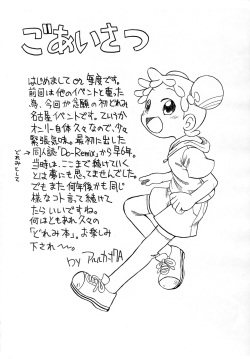 ごあいさつ
はじめまして or 毎度です。
前回は他のイベントと重った
為、今回が念願の初どれみ
名古屋イベントです。ていうか
オンリー自体久々なので、少々
緊張気味。最初に出した
同人誌「Do-Remix」から早6年。
どれみとして
当時は、ここまで続けていく
とは夢にも思ってませんでした。
でもまた何年後かも同じ
様なコト言って続けて
たらいいですね。
何はともあれ久々の
「どれみ本」。お楽しみ
下され〜。
by